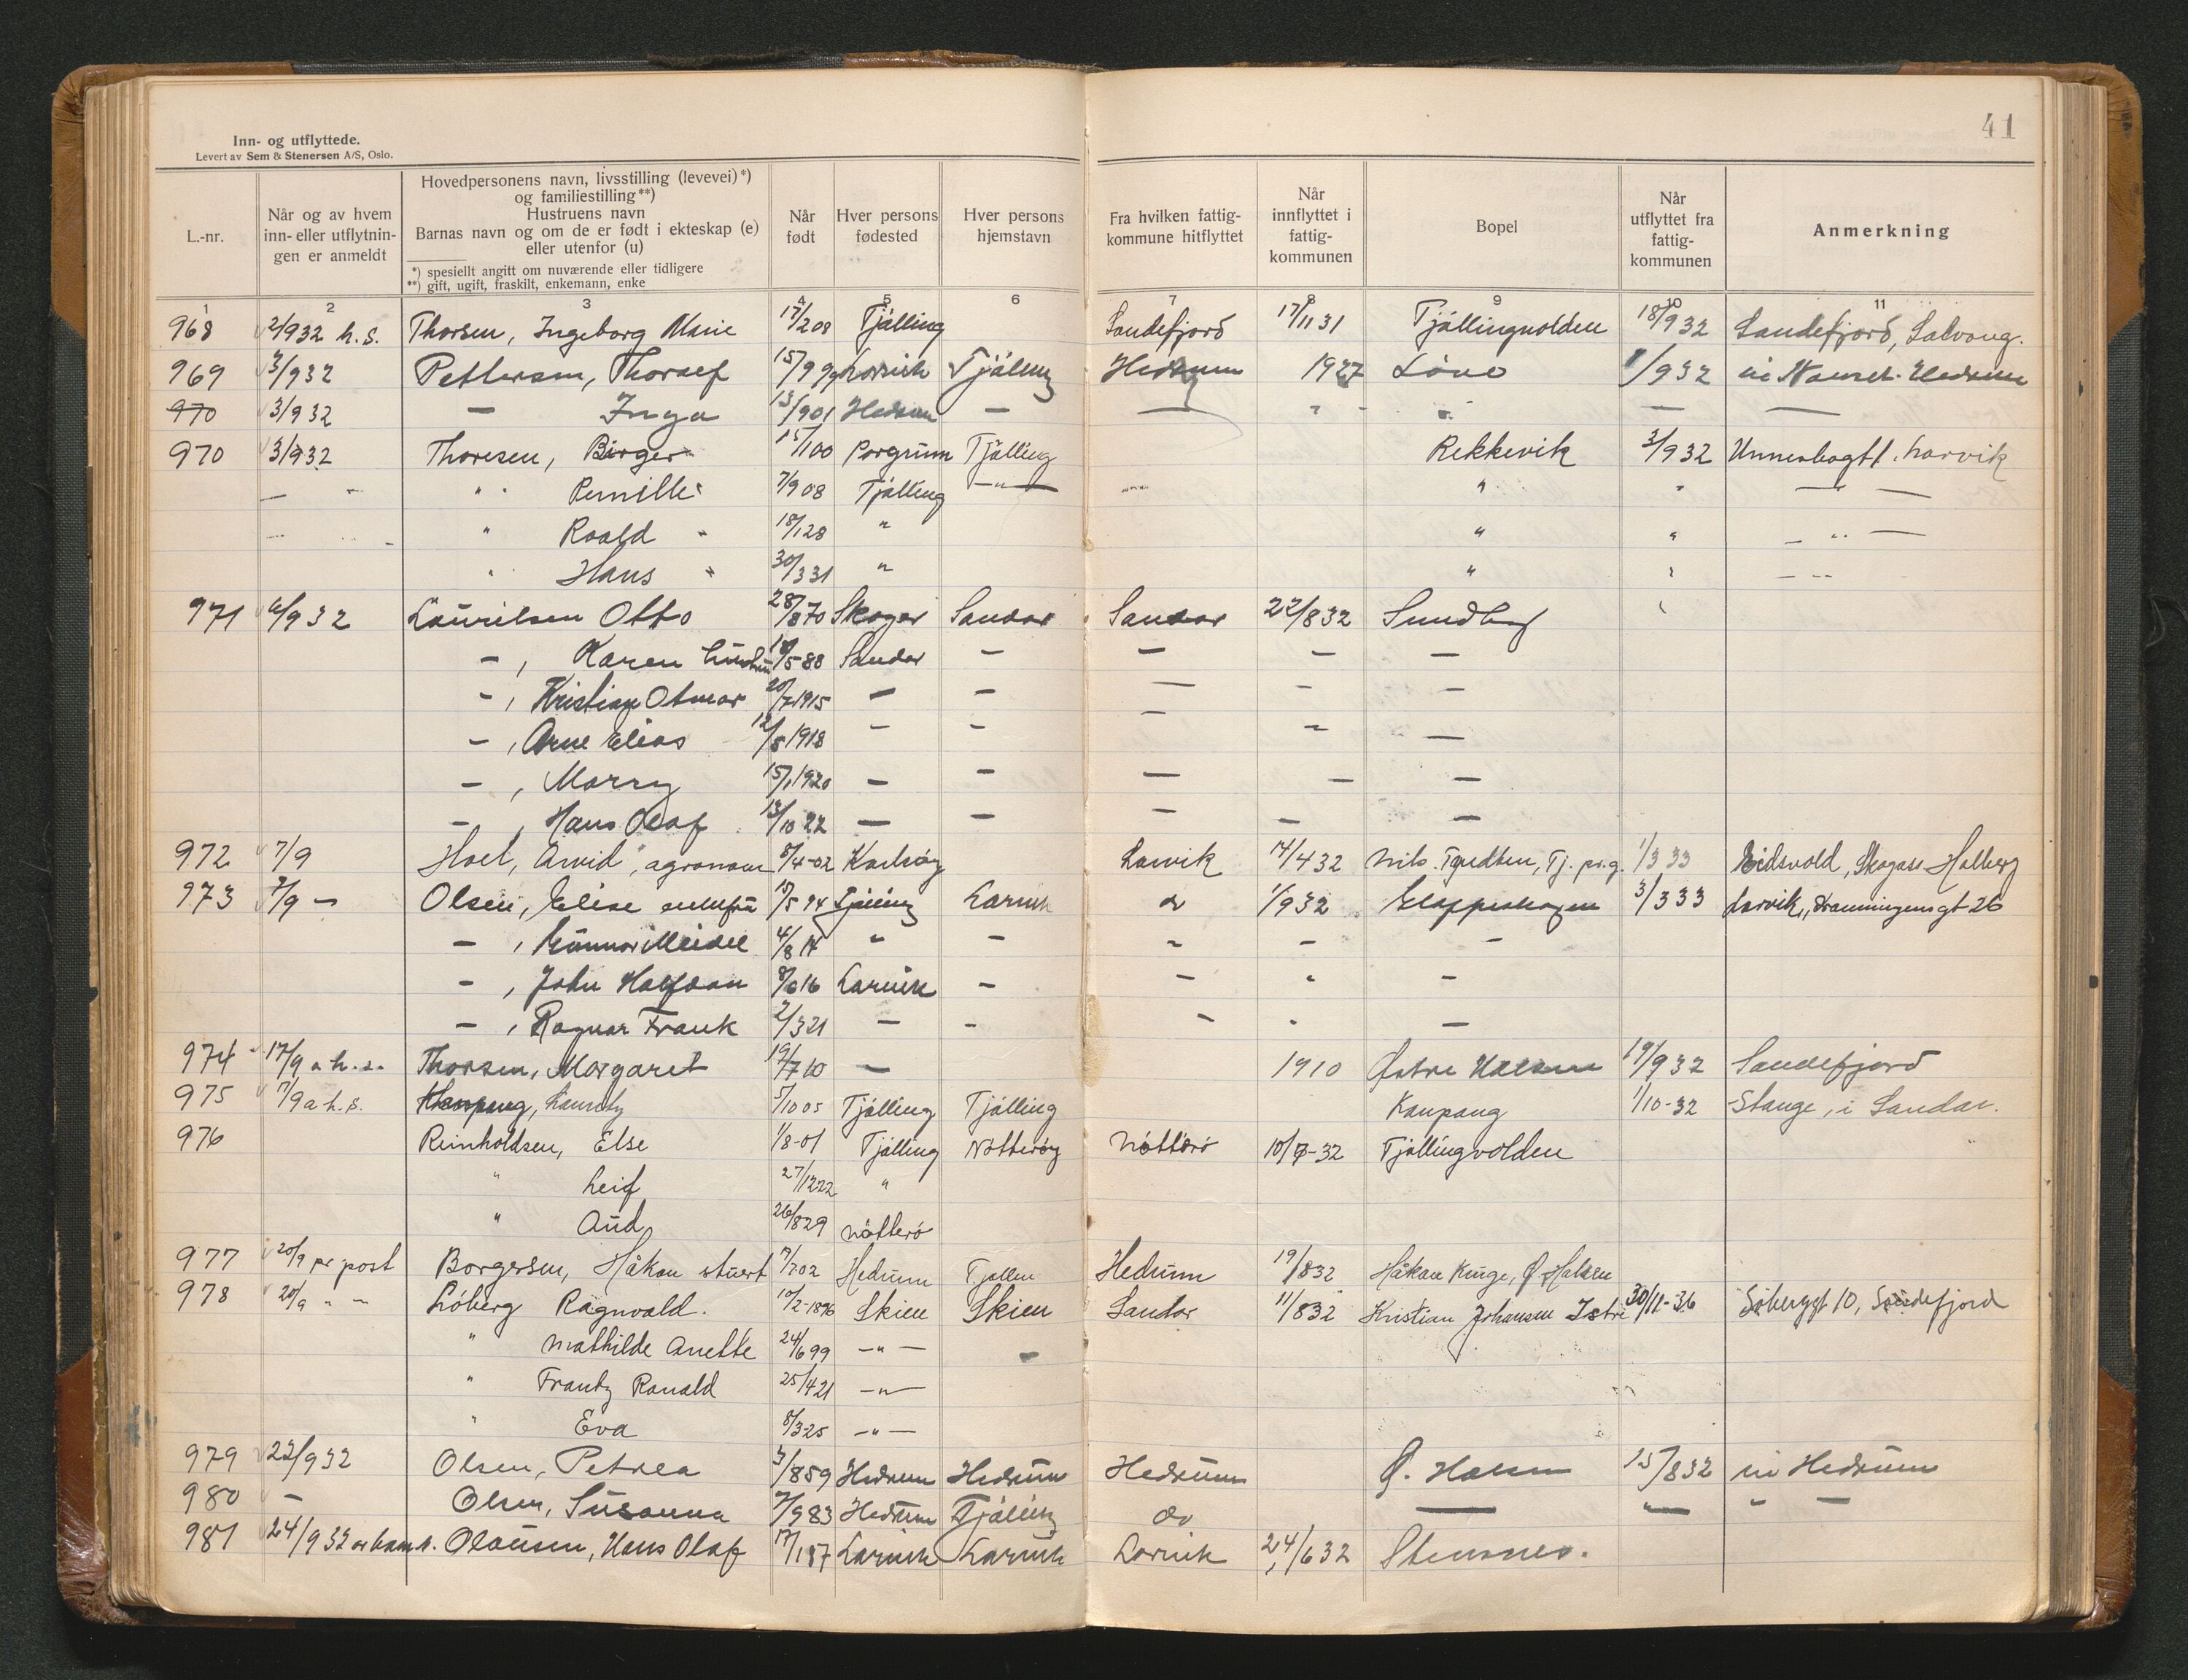 41
Inn- og utflyttede.
Levert av Sem & Stenersen A/S, Oslo.
L.-nr. | Når og av hvem inn- eller utflytnin-gen er anmeldt | Hovedpersonens navn, livsstilling (levevei)*) og familiestilling**) Hustruens navn Barnas navn og om de er født i ekteskap (e) eller utenfor (u) *) spesiellt angitt om nuværende eller tidligere **) gift, ugift, fraskilt, enkemann, enke | Når født | Hver persons fødested | Hver persons hjemstavn | Fra hvilken fattig-kommune hitflyttet | Når innflyttet i fattig-kommunen | Bopel | Når utflyttet fra fattig-kommunen | Anmerkning
1 2 3 4 5 6 7 8 9 10 11
968 2/932 h.s. Thorsen, Ingeborg Marie 17/2 08 Tjølling Sandefjord 17/11 31 Tjøllingvolden 18/9 32 Sandefjord,
969 3/932 Pettersen, Thoralf 15/9 99 Larvik Tjølling Hedrum 1927 Løvø 1/932 Hedrum
970 3/932 — Inga 13/901 Hedrum — — " — —
970 3/932 Thoresen, Birger 15/1 00 Porsgrunn Tjølling Rekkevik 3/932 Larvik
— " Pernille 7/9 08 Tjølling —"— " " — —
" Roald " 18/1 28 " " " — " —
" Hans " 30/3 31 " " " — " —
971 6/932 Lauritsen Otto 28/8 70 Skoger Sandar Sandar 22/8 32 Sundby
—, Karen hustru 18/5 88 Sandar — — — —
—, Kristian Otmar 20/7 1915 — — — — —
—, Arne Elias 12/8 1918 — — — — —
—, Marry 15/1 1920 — — — — —
—, Hans Olaf 13/10 22 — — — — —
972 7/9 Hoel, Arvid, agronom 8/4-02 Karlsøy Larvik 14/4 32 Nils Tj. pr.g. 1/3 33 Eidsvold, Holberg
973 7/9 — Olsen, Elise enkefru 15/5 94 Tjølling Larvik do 1/932 Klåppeskogen 3/3 33 Larvik, gt 26
—, Gunnar Meidel 4/8 14 " — " — —
—, John Halfdan 8/6 16 Larvik — — " —
—, Ragnar Frank 2/3 21 — — — " —
974 17/9 a h.s. Thorsen, Margaret 19/7 10 — 1910 Østre Halsen 19/932 Sandefjord
975 7/9 a h.s. Kaupang, Laurity 5/10 05 Tjølling Tjølling Kaupang 1/10-32 Stange, i Sandar.
976 Reinholdsen, Else 1/8-01 Tjølling Nøtterøy Nøtterø 10/9-32 Tjøllingvolden
" Leif 27/12 22 "
" Aud 26/8 29 Nøtterø
977 20/9 pr post Borgersen, Håkon stuert 7/2 02 Hedrum Tjølling Hedrum 19/8 32 Håkon Kinge, Ø Halsen
978 20/9 " — Løberg Ragnvald. 10/2-1896 Skien Skien Sandar 11/8 32 Kristian Johansen Istre 30/11-36 Søbergst 10, Sandefjord
" Mathilde Anette 24/6 99 —"— —
" Frantz Ronald 25/4 21 —"—
" Eva 8/3 25 —"—
979 22/932 Olsen, Petrea 3/8 59 Hedrum Hedrum Hedrum Ø. Halsen 15/8 32 Hedrum
980 — Olsen, Susanna 7/9 83 Hedrum Tjølling do — "— " —
981 24/932 av ham s. Olausen, Hans Olaf 17/1 87 Larvik Larvik Larvik 24/6 32 Stensnes.